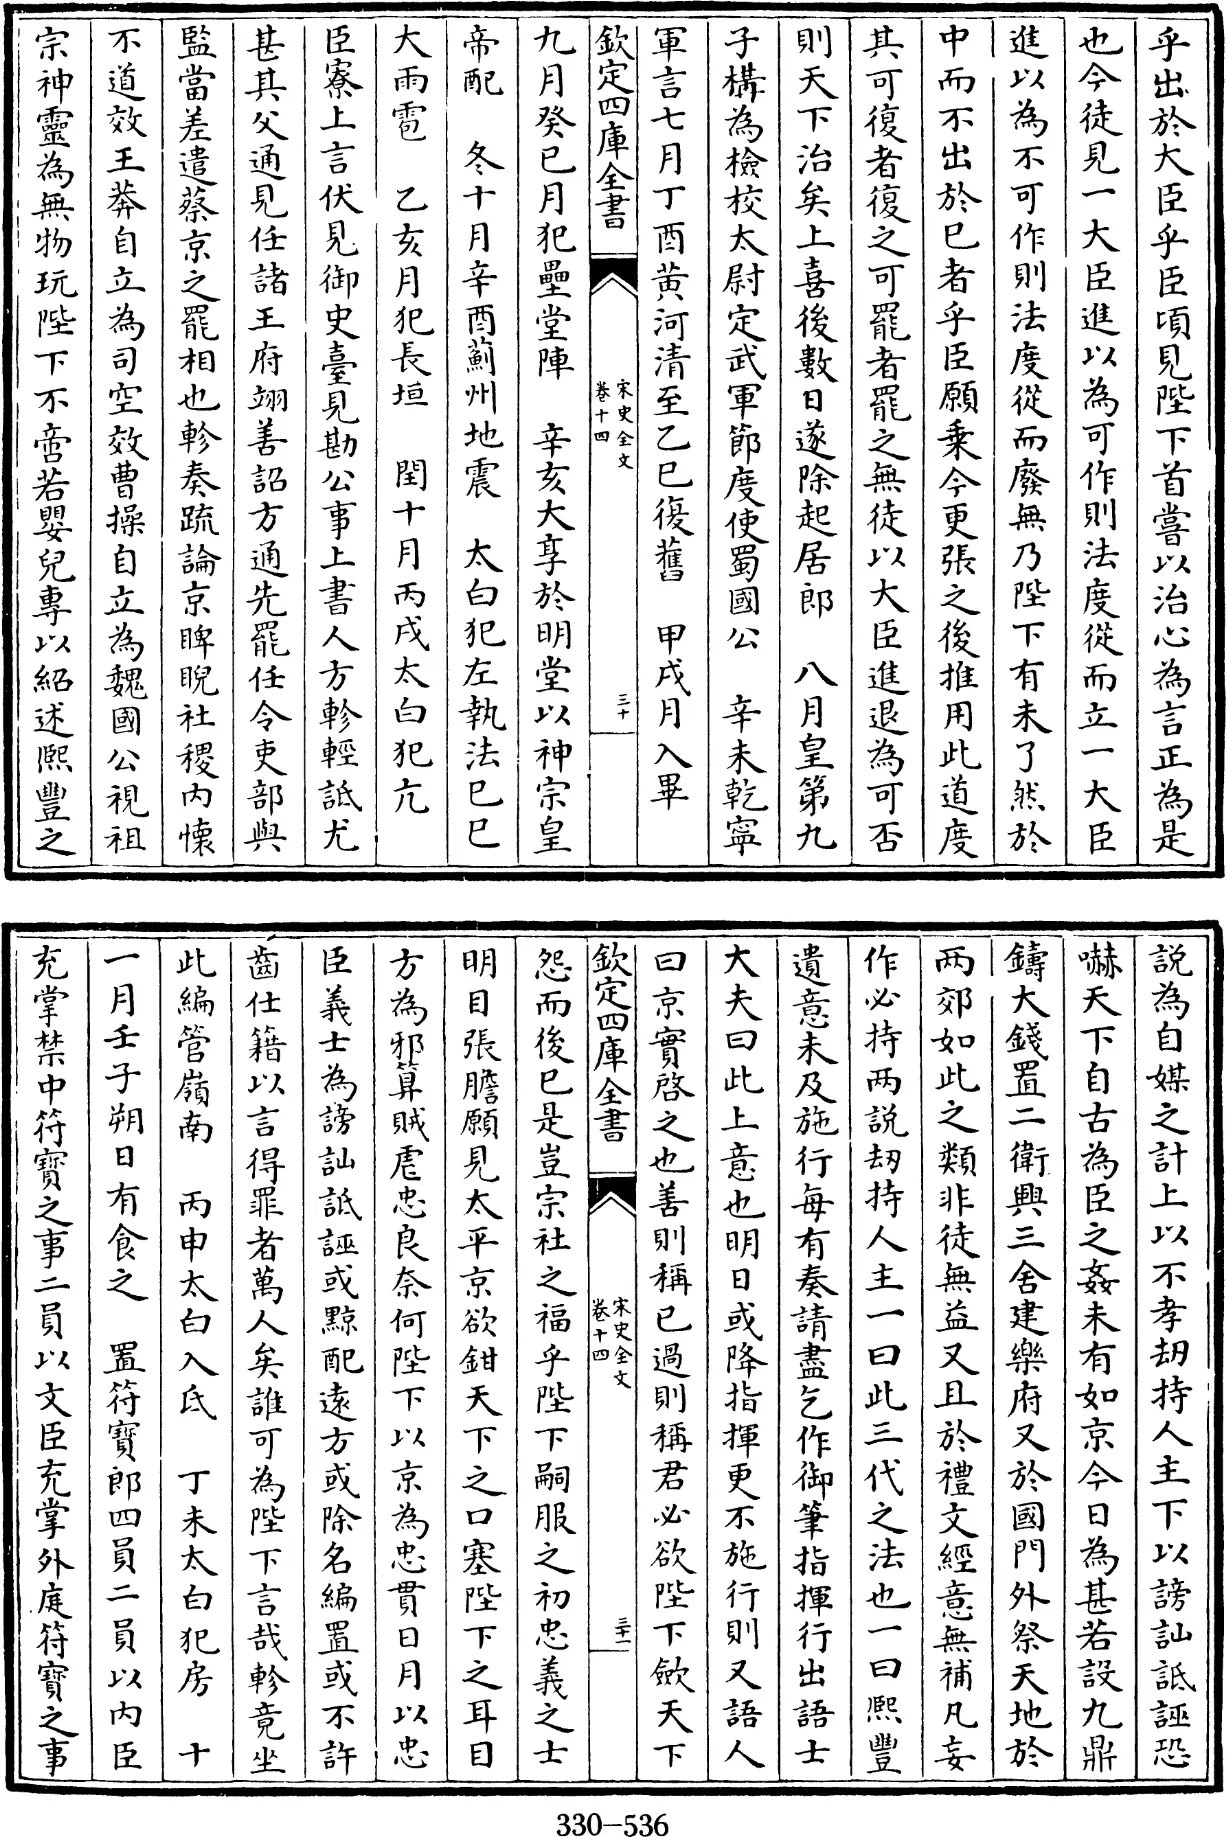 乎出於大臣乎臣頃見陛下首嘗以治心為言正為是
也今徒見一大臣進以為可作則法度從而立一大臣
進以為不可作則法度從而廢無乃陛下有未了然於
中而不出於已者乎臣願乗今更張之後推用此道度
其可復者復之可罷者罷之無徒以大臣進退為可否
則天下治矣上喜後數日遂除起居郎　八月皇第九
子構為檢校太尉定武軍節度使蜀國公　辛未乾寧
軍言七月丁酉黄河清至乙巳復舊　甲戌月入畢
欽定四庫全書
宋史全文
卷十四
三十
九月癸巳月犯壘堂陣　辛亥大享於明堂以神宗皇
帝配　冬十月辛酉薊州地震　太白犯左執法巳巳
大雨雹　乙亥月犯長垣　閏十月丙戌太白犯亢
臣寮上言伏見御史臺見勘公事上書人方軫輕詆尤
甚其父通見任諸王府翊善詔方通先罷任令吏部與
監當差遣蔡京之罷相也軫奏疏論京睥睨社稷内懐
不道效王莽自立為司空效曹操自立為魏國公視祖
宗神靈為無物玩陛下不啻若嬰兒專以紹述熙豐之
說為自媒之計上以不孝刼持人主下以謗訕詆誣恐
嚇天下自古為臣之姦未有如京今日為甚若設九鼎
鑄大錢置二衛興三舍建樂府又於國門外祭天地於
两郊如此之類非徒無益又且於禮文經意無補凡妄
作必持两説刼持人主一曰此三代之法也一曰熙豐
遺意未及施行每有奏請盡乞作御筆指揮行出語士
大夫曰此上意也明日或降指揮更不施行則又語人
曰京實啓之也善則稱已過則稱君必欲陛下斂天下
欽定四庫全書
宋史全文
卷十四
三十一
怨而後已是豈宗社之福乎陛下嗣服之初忠義之士
明目張膽願見太平京欲鉗天下之口塞陛下之耳目
方為邪算賊虐忠良奈何陛下以京為忠貫日月以忠
臣義士為謗訕詆誣或黥配遠方或除名編置或不許
齒仕籍以言得罪者萬人矣誰可為陛下言哉軫竟坐
此編管嶺南　丙申太白入氐　丁未太白犯房　十
一月壬子朔日有食之　置符寶郎四員二員以内臣
充掌禁中符寶之事二員以文臣充掌外庭符寶之事
330-536